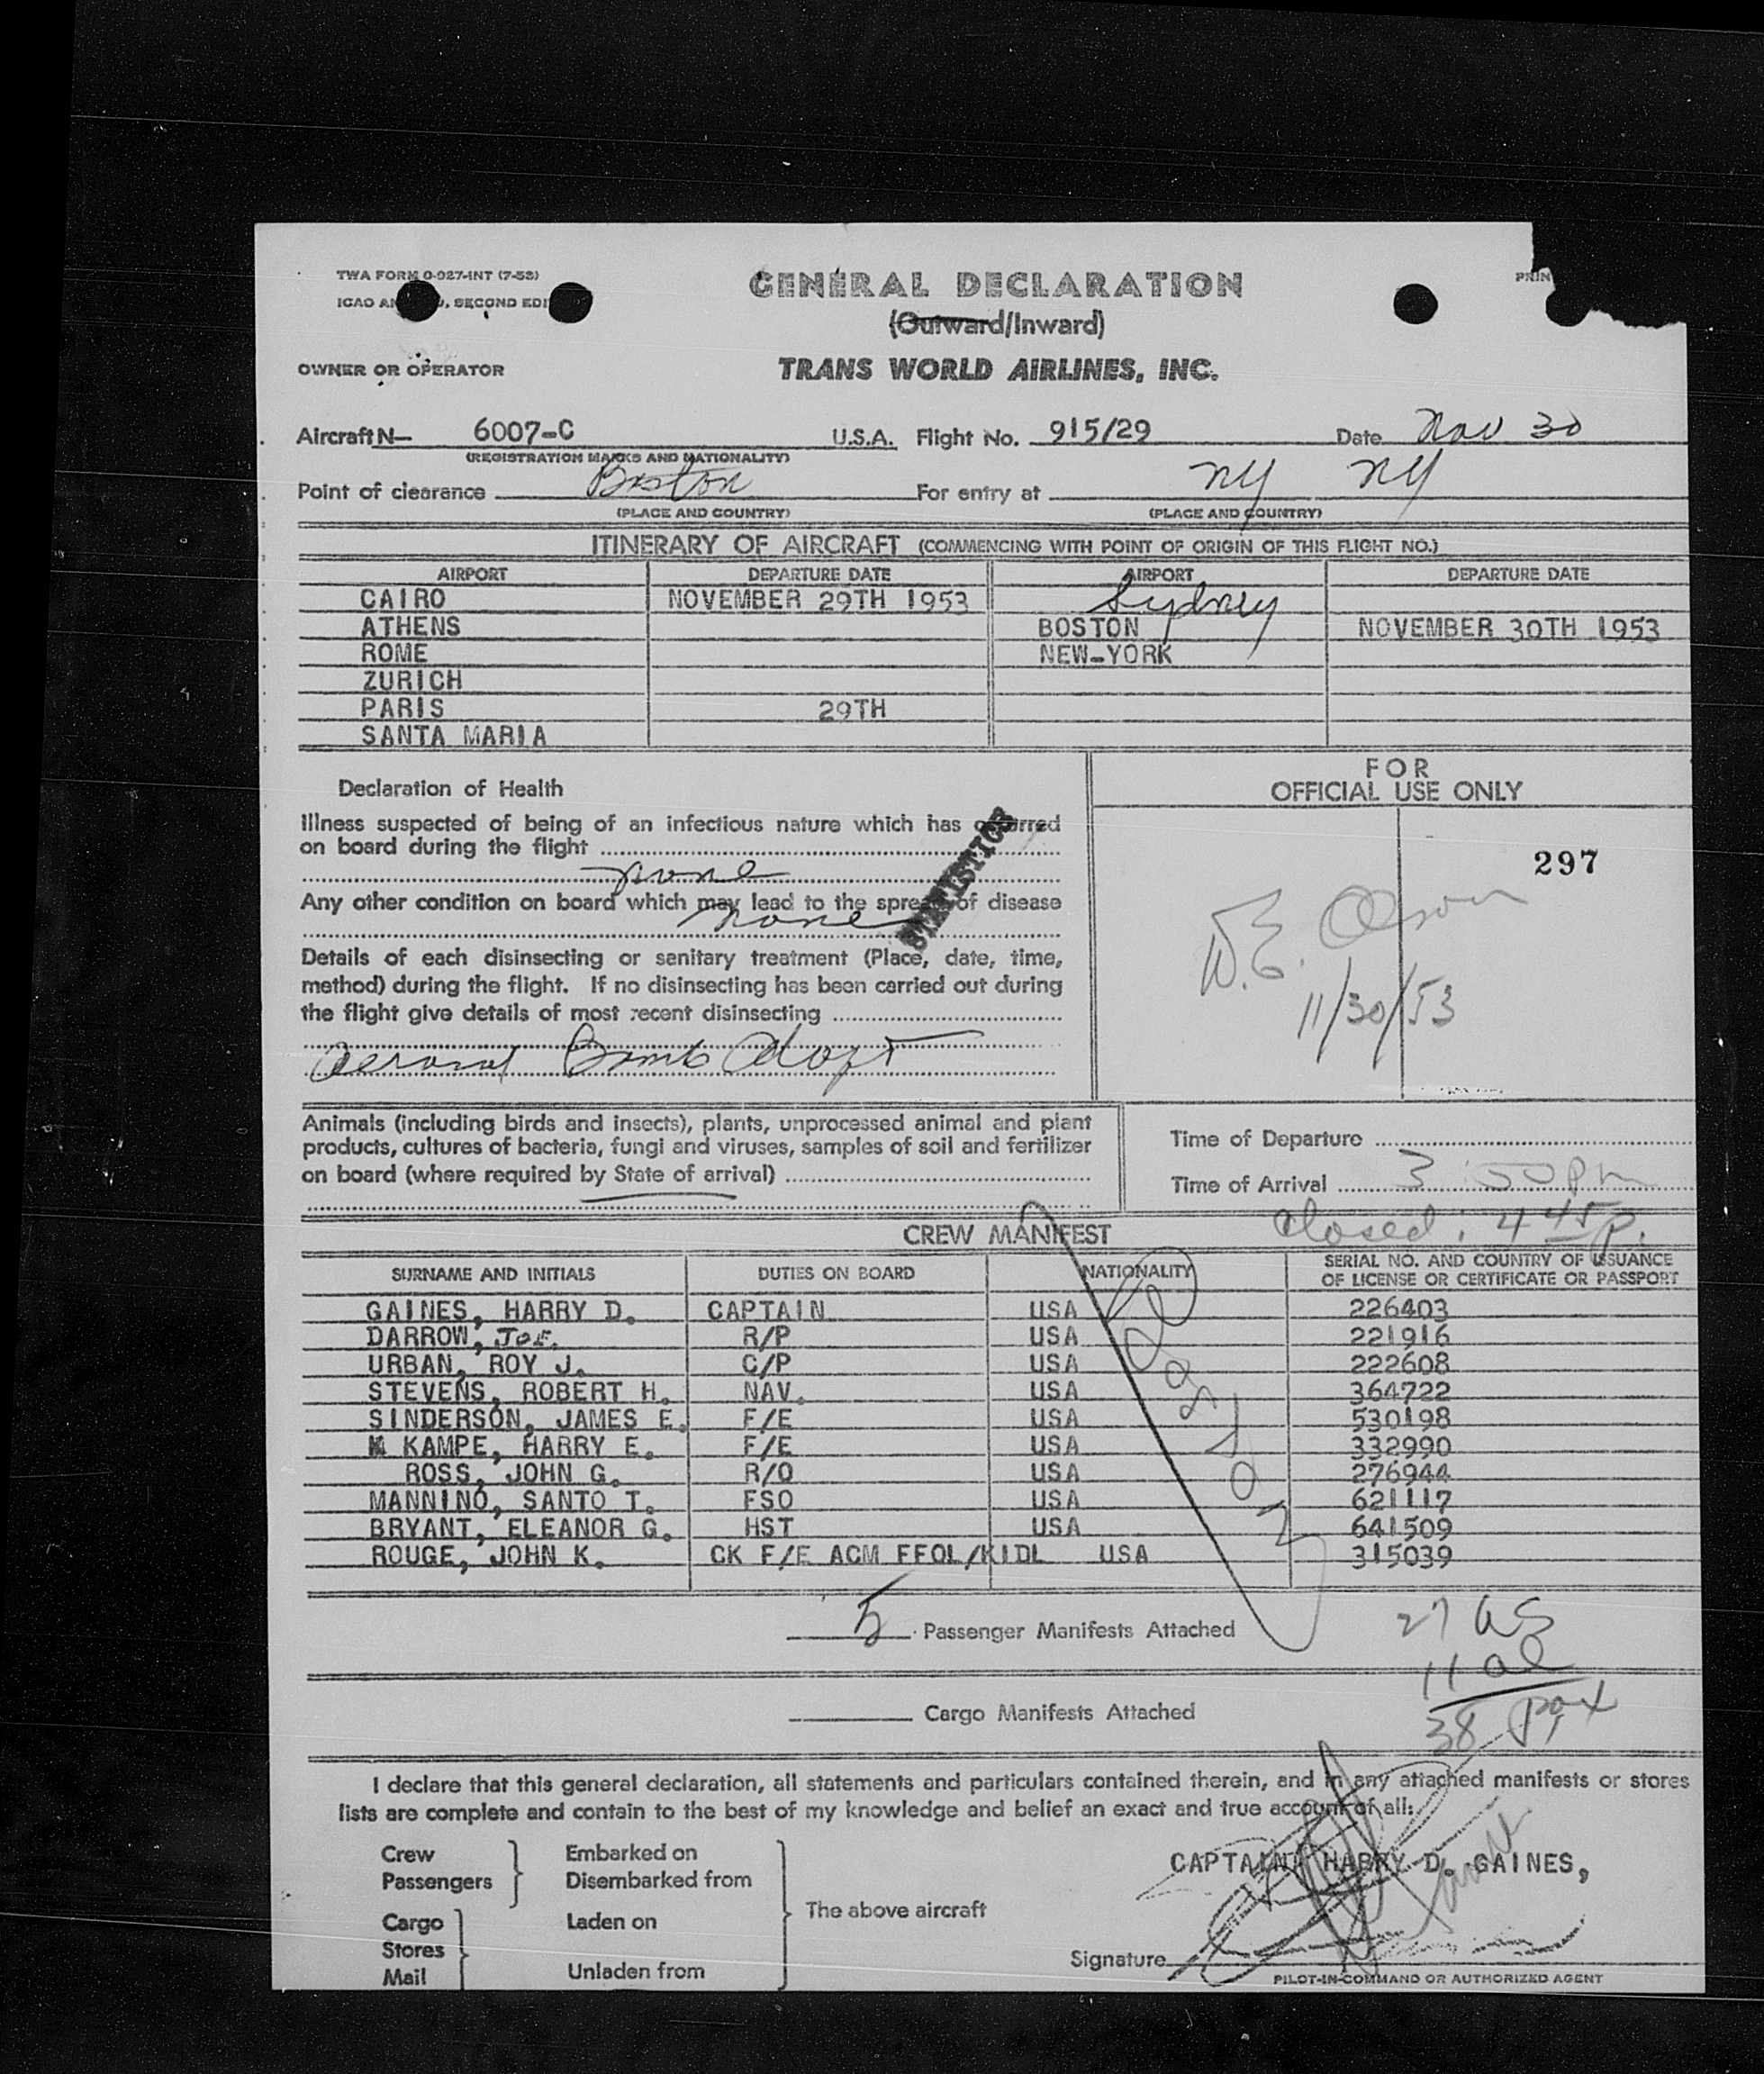 TWA FORM O-027-INT (7-53)
ICAO AN , SECOND EDI
PRIN
GENERAL DECLARATION
(Outward/Inward)
OWNER OR OPERATOR
TRANS WORLD AIRLINES, INC.
Aircraft N— 6007-C U.S.A. Flight No. 915/29 Date Nov 30
(REGISTRATION MARKS AND NATIONALITY)
Point of clearance Boston For entry at NY NY
(PLACE AND COUNTRY) (PLACE AND COUNTRY)
ITINERARY OF AIRCRAFT (COMMENCING WITH POINT OF ORIGIN OF THIS FLIGHT NO.)
AIRPORT DEPARTURE DATE AIRPORT DEPARTURE DATE
CAIRO NOVEMBER 29TH 1953 Sydney
ATHENS BOSTON NOVEMBER 30TH 1953
ROME NEW-YORK
ZURICH
PARIS 29TH
SANTA MARIA
Declaration of Health
Illness suspected of being of an infectious nature which has occurred
on board during the flight
none
Any other condition on board which may lead to the spread of disease
none
STATISTICS
Details of each disinsecting or sanitary treatment (Place, date, time,
method) during the flight. If no disinsecting has been carried out during
the flight give details of most recent disinsecting
Aerosol Bomb
FOR
OFFICIAL USE ONLY
297
W.E. Olson
11/30/53
Animals (including birds and insects), plants, unprocessed animal and plant
products, cultures of bacteria, fungi and viruses, samples of soil and fertilizer
on board (where required by State of arrival)
Time of Departure
Time of Arrival 3 50 pm
Closed: 4 45 p.
CREW MANIFEST
SURNAME AND INITIALS DUTIES ON BOARD NATIONALITY SERIAL NO. AND COUNTRY OF ISSUANCE
OF LICENSE OR CERTIFICATE OR PASSPORT
GAINES, HARRY D. CAPTAIN USA 226403
DARROW, JOE. R/P USA 221916
URBAN, ROY J. C/P USA 222608
STEVENS, ROBERT H. NAV. USA 364722
SINDERSON, JAMES E. F/E USA 530198
KAMPE, HARRY E. F/E USA 332990
ROSS, JOHN G. R/O USA 276944
MANNINO, SANTO T. FSO USA 621117
BRYANT, ELEANOR G. HST USA 641509
ROUGE, JOHN K. CK F/E ACM FFOL/KIDL USA 315039
5 Passenger Manifests Attached
27 US
11 al
38 pax
Cargo Manifests Attached
I declare that this general declaration, all statements and particulars contained therein, and in any attached manifests or stores
lists are complete and contain to the best of my knowledge and belief an exact and true account of all:
Crew Embarked on
Passengers Disembarked from
CAPTAIN HARRY D. GAINES,
The above aircraft
Cargo Laden on
Stores
Mail Unladen from
Signature
PILOT-IN-COMMAND OR AUTHORIZED AGENT